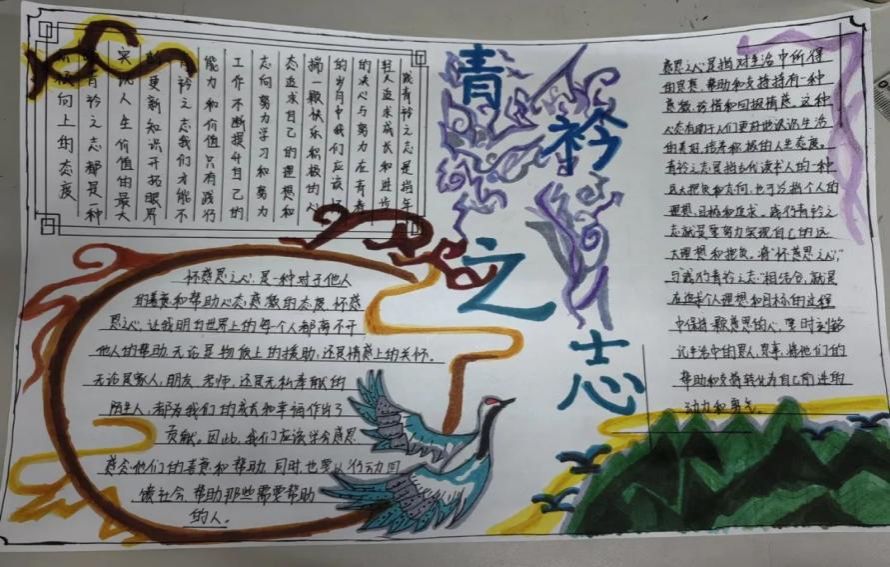 践青衿之志是指年
轻人追求成长和进步
的决心与努力在青春
的岁月中我们应该怀
揣一颗快乐积极的心
态追求自己的理想和
志向努力学习和努力
工作不断提升自己的
能力和价值只有践行
青衿之志我们才能不
的更新知识开拓眼界
实现人生价值的最大
青衿之志都是一种
向上的态度
青衿之志
怀感恩之心,是一种对于他人
的善意和帮助心态感激的态度.怀感
恩之心,让我明白世界上的每个人都离不开
他人的帮助,无论是物质上的援助,还是情感上的关怀。
无论是家人,朋友,老师,还是无私奉献的
陌生人,都为我们的成长和幸福作出了
贡献。因此,我们应该学会感恩
感念他们的善意和帮助,同时,也要以行动回
馈社会,帮助那些需要帮助
的人。
感恩之心是指对生活中所得
的恩惠、帮助和支持持有一种
感激、珍惜和回报情感。这种
心态有助于人们更好地认识生活
的美好,培养积极的人生态度。
青衿之志是指古代读书人的一种
远大抱负和志向,也可以指个人的
理想、目标和追求。践行青衿之
志就是要努力实现自己的远
大理想和抱负。将"怀感恩之心"
与"践行青衿之志"相结合,就是
在追求个人理想和目标的过程
中保持一颗感恩的心,要时刻铭
记生活中的恩人、恩事,将他们的
帮助和支持转化为自己前进的
动力和勇气。